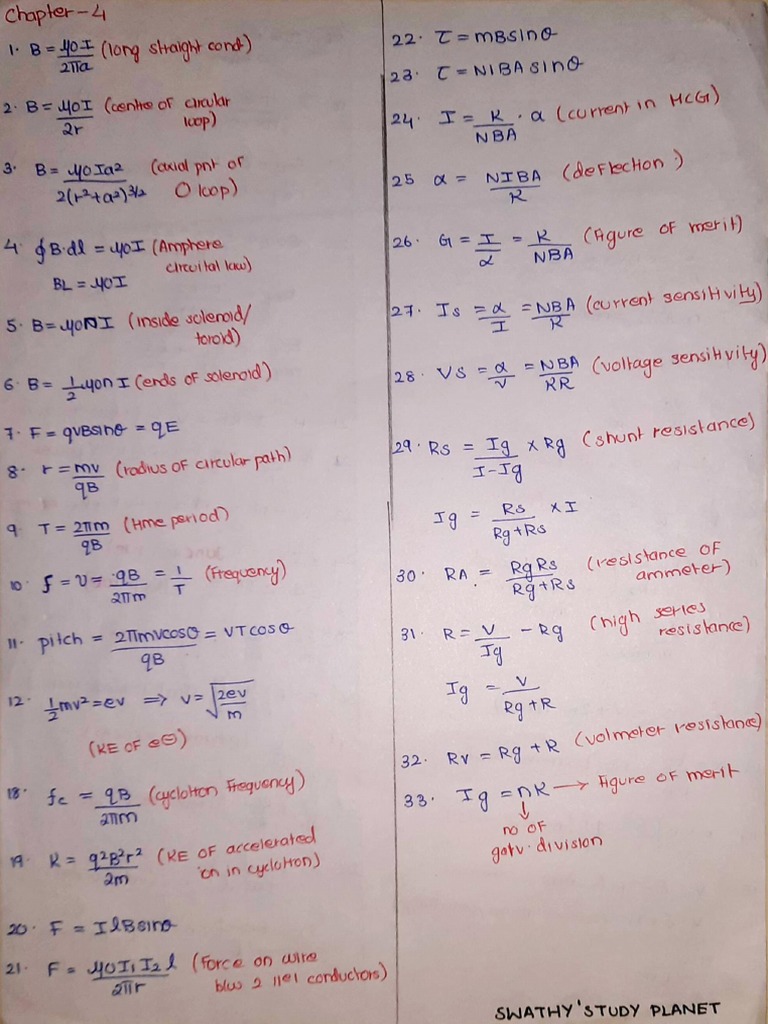 Chapter-4
1. B = μ0I/2πa (long straight cond)
2. B = μ0I/2r (centre of circular
loop)
3. B = μ0Ia2/2(r2+a2)3/2 (axial pnt of
O loop)
4. ∮B.dl = μ0I (Amphere
circuital law)
BL = μ0I
5. B = μ0NI (inside solenoid/
toroid)
6. B = 1/2 μ0nI (ends of solenoid)
7. F = qvBsinθ = qE
8. r = mv/qB (radius of circular path)
9. T = 2πm/qB (time period)
10. f = υ = qB/2πm = 1/T (frequency)
11. pitch = 2πmvcosθ/qB = VTcosθ
12. 1/2 mv2 = ev ⇒ v = √2ev/m
(KE of e⊖)
18. fc = qB/2πm (cyclotron frequency)
19. K = q2B2r2/2m (KE of accelerated
ion in cyclotron)
20. F = IlBsinθ
21. F = μ0I1I2l/2πr (Force on wire
blw 2 llel conductors)
22. τ = mBsinθ
23. τ = NIBAsinθ
24. I = K/NBA . α (current in MCG)
25 α = NIBA/K (deflection)
26. G = I/α = K/NBA (figure of merit)
27. Is = α/I = NBA/K (current sensitivity)
28. Vs = α/V = NBA/KR (voltage sensitivity)
29. Rs = Ig/I-Ig × Rg (shunt resistance)
Ig = Rs/Rg+Rs × I
30. RA = RgRs/Rg+Rs (resistance of
ammeter)
31. R = V/Ig - Rg (high series
resistance)
Ig = V/Rg+R
32. Rv = Rg + R (volmeter resistance)
33. Ig = nK → figure of merit
↓
no of
galv. division
SWATHY'STUDY PLANET